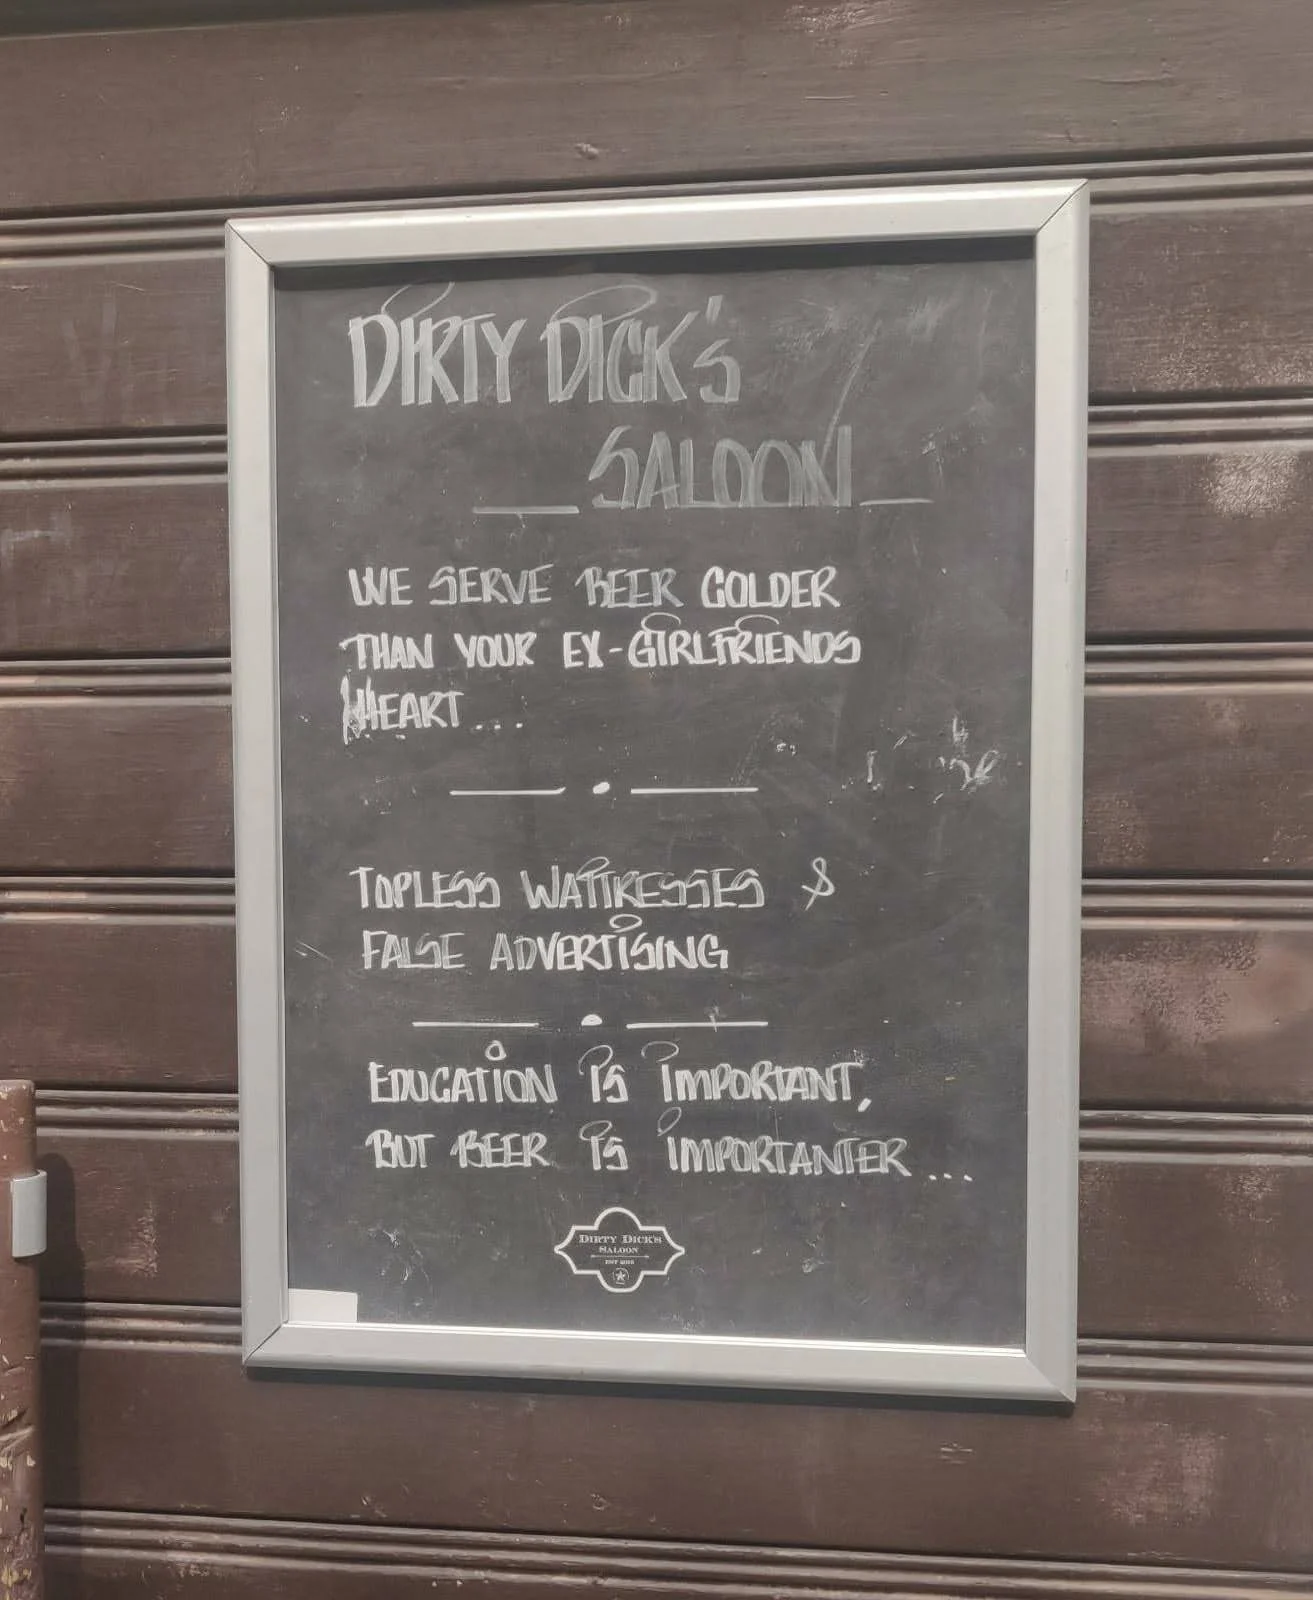 DIRTY DICK'S
SALOON
WE SERVE BEER COLDER
THAN YOUR EX-GIRLFRIENDS
HEART...
TOPLESS WAITRESSES &
FALSE ADVERTISING
EDUCATION IS IMPORTANT,
BUT BEER IS IMPORTANTER...
DIRTY DICK'S
SALOON